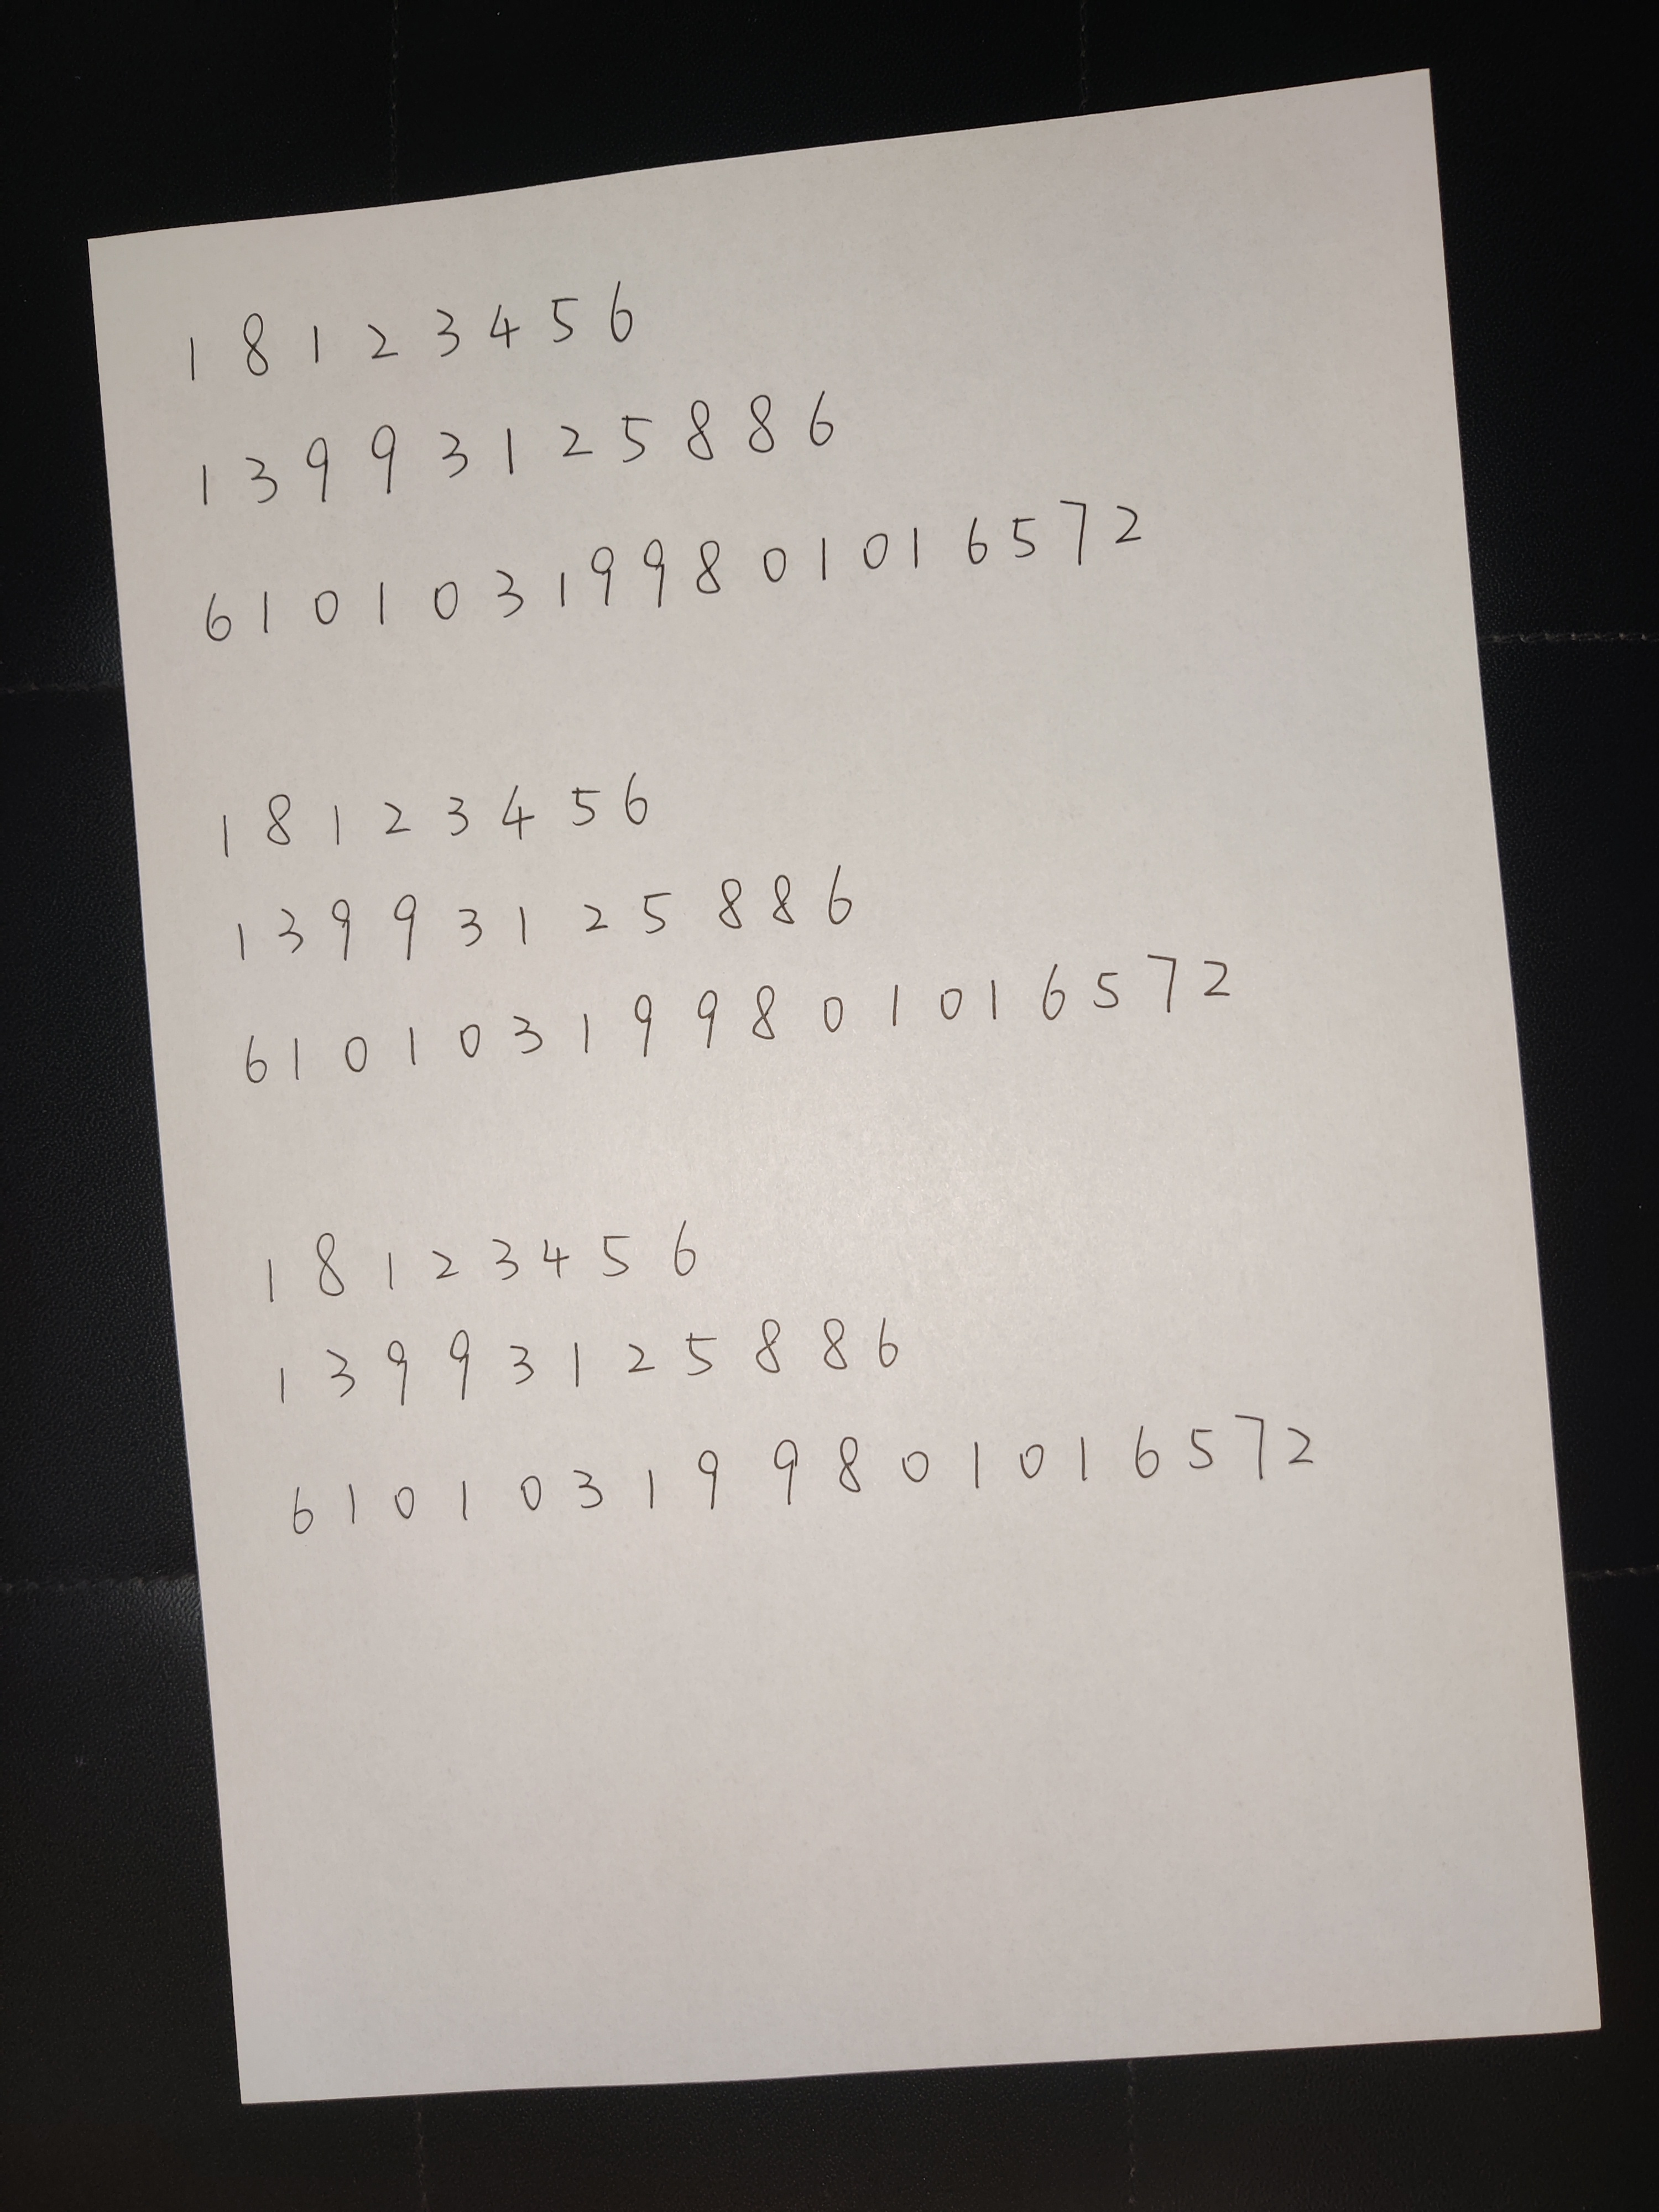 1 8 1 2 3 4 5 6
1 3 9 9 3 1 2 5 8 8 6
6 1 0 1 0 3 1 9 9 8 0 1 0 1 6 5 7 2
1 8 1 2 3 4 5 6
1 3 9 9 3 1 2 5 8 8 6
6 1 0 1 0 3 1 9 9 8 0 1 0 1 6 5 7 2
1 8 1 2 3 4 5 6
1 3 9 9 3 1 2 5 8 8 6
6 1 0 1 0 3 1 9 9 8 0 1 0 1 6 5 7 2